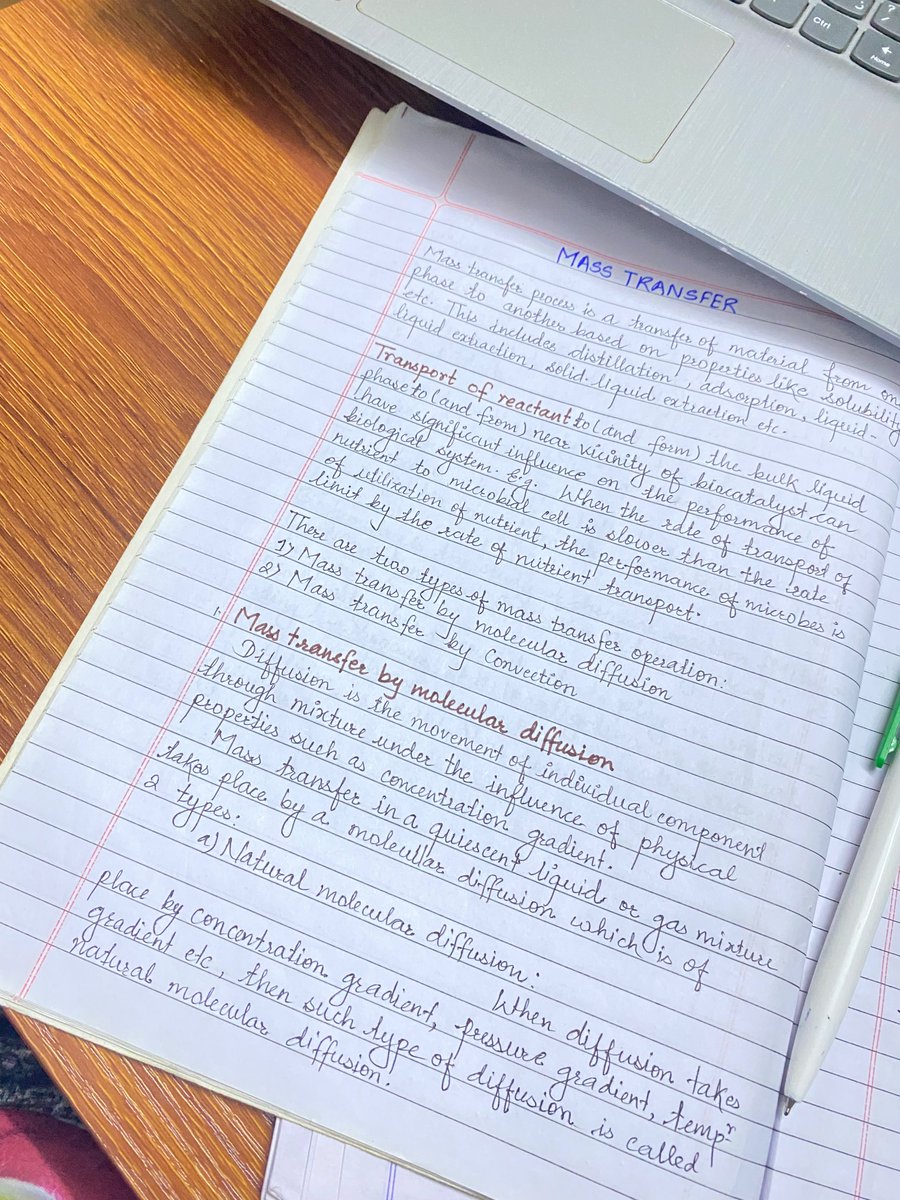 Ctrl
Home
MASS TRANSFER
Mass transfer process is a transfer of material from on
phase to another based on properties like solubility
etc. This includes distillation, adsorption, liquid-
liquid extraction, solid-liquid extraction etc.
Transport of reactant to (and form) the bulk liquid
phase to (and from) near vicinity of biocatalyst can
have significant influence on the performance of
biological system. e.g. When the rate of transport of
nutrient to microbial cell is slower than the rate
of utilization of nutrient, the performance of microbes is
limit by the rate of nutrient transport.
There are two types of mass transfer operation:
1) Mass transfer by molecular diffusion
2) Mass transfer by Convection
1. Mass transfer by molecular diffusion
Diffusion is the movement of individual component
through mixture under the influence of physical
properties such as concentration gradient.
Mass transfer in a quiescent liquid or gas mixture
takes place by a molecular diffusion which is of
2 types.
a) Natural molecular diffusion:
When diffusion takes
place by concentration gradient, pressure gradient, tempr
gradient etc, then such type of diffusion is called
natural molecular diffusion.